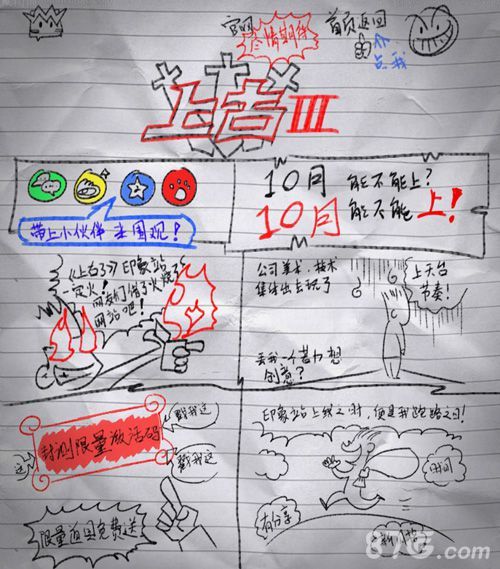 官网
尽情期待
首页返回
个
点我
上古III
10月 能不能上？
10月 能不能上！
带上小伙伴 去围观！
《上古3》印象站
一定火！
网友们借了火烧了
网站吧！
公司美术、技术
集体出去玩了
丢我一个苦力想
创意？
上天台
节奏！
封测限量激活码
戳我这
戳我这
这
限量返图免费送
印象站上线之时，便是我跑路之日！
时间
有分享
87G.com